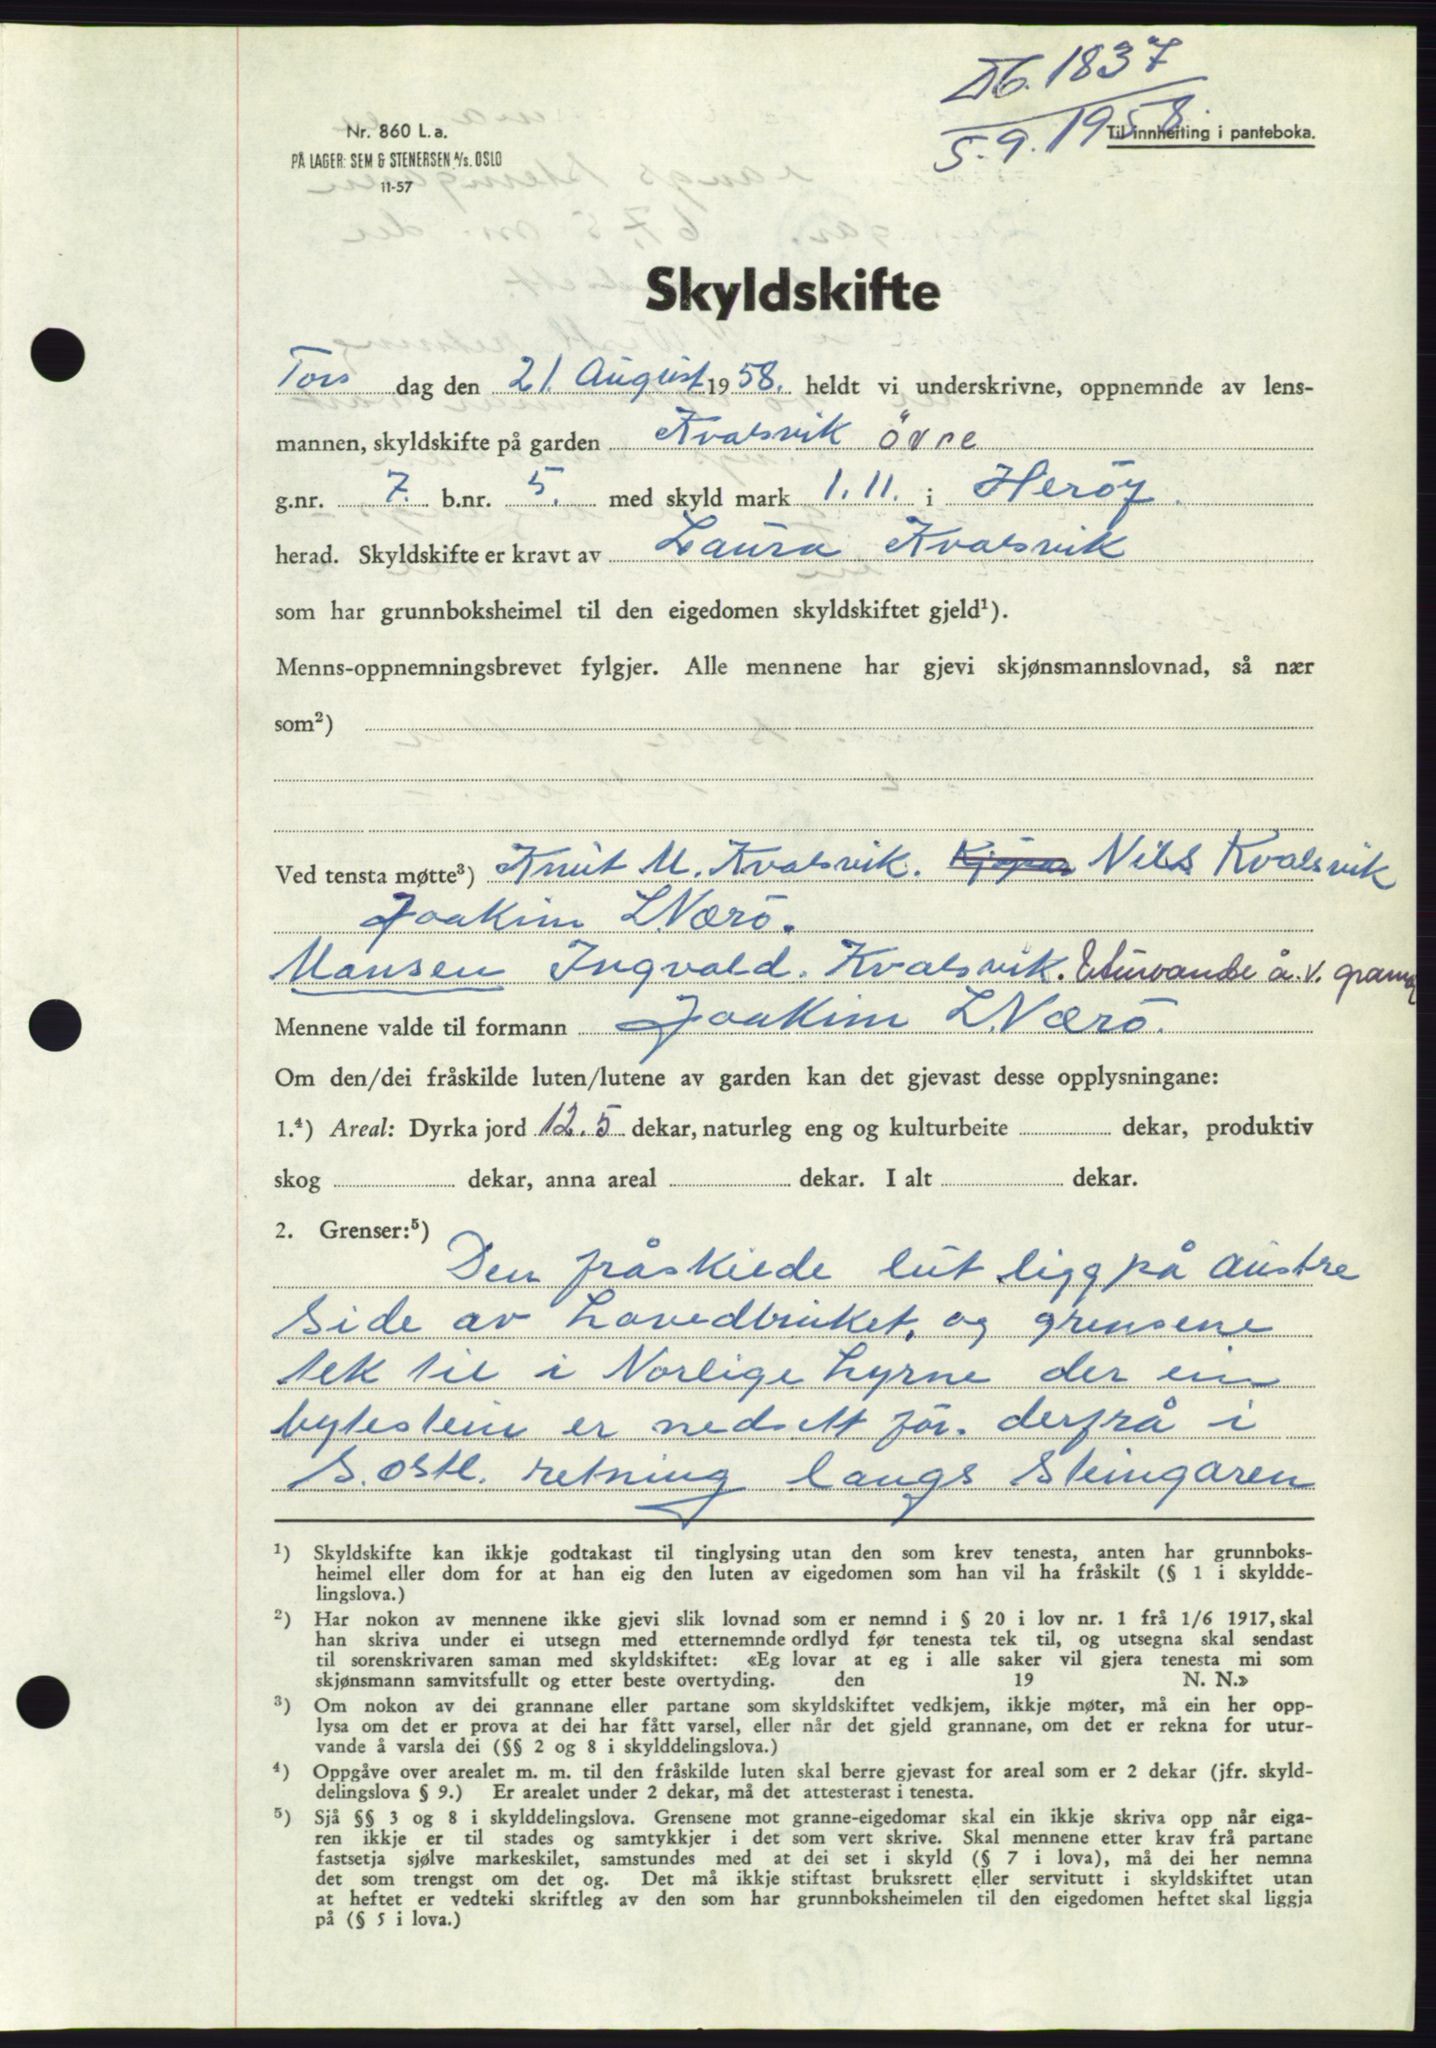 Db. 1837
5.9.1958.
Nr. 860 L. a.
PÅ LAGER: SEM & STENERSEN A/S. OSLO
11-57
Til innhefting i panteboka.
Skyldskifte
Tors dag den 21. August 1958. heldt vi underskrivne, oppnemnde av lens-
mannen, skyldskifte på garden Kvalsvik övre
g.nr. 7. b.nr. 5. med skyld mark 1.11. i Heröy.
herad. Skyldskifte er kravt av Laura Kvalsvik
som har grunnboksheimel til den eigedomen skyldskiftet gjeld¹).
Menns-oppnemningsbrevet fylgjer. Alle mennene har gjevi skjønsmannslovnad, så nær
som²)
Ved tensta møtte³) Knut M. Kvalsvik. Nils Kvalsvik
Joakim L. Nærö.
Mansen Ingvald. Kvalsvik. Uturvande å. v.
Mennene valde til formann Joakim L. Nærö.
Om den/dei fråskilde luten/lutene av garden kan det gjevast desse opplysningane:
1.⁴) Areal: Dyrka jord 12.5 dekar, naturleg eng og kulturbeite dekar, produktiv
skog dekar, anna areal dekar. I alt dekar.
2. Grenser:⁵)
Den fråskilde lut ligg på austre
side av hovedbruket, og grensene
tek til i Norlige hyrne der ein
bytestein er nedsett för. derfrå i
S. ostl. retning langs Steingaren
¹) Skyldskifte kan ikkje godtakast til tinglysing utan den som krev tenesta, anten har grunnboks-
heimel eller dom for at han eig den luten av eigedomen som han vil ha fråskilt (§ 1 i skyldde-
lingslova.)
²) Har nokon av mennene ikke gjevi slik lovnad som er nemnd i § 20 i lov nr. 1 frå 1/6 1917, skal
han skriva under ei utsegn med etternemnde ordlyd før tenesta tek til, og utsegna skal sendast
til sorenskrivaren saman med skyldskiftet: «Eg lovar at eg i alle saker vil gjera tenesta mi som
skjønsmann samvitsfullt og etter beste overtyding. den 19 N. N.»
³) Om nokon av dei grannane eller partane som skyldskiftet vedkjem, ikkje møter, må ein her opp-
lysa om det er prova at dei har fått varsel, eller når det gjeld grannane, om det er rekna for utur-
vande å varsla dei (§§ 2 og 8 i skylddelingslova.)
⁴) Oppgåve over arealet m. m. til den fråskilde luten skal berre gjevast for areal som er 2 dekar (jfr. skyld-
delingslova § 9.) Er arealet under 2 dekar, må det attesterast i tenesta.
⁵) Sjå §§ 3 og 8 i skylddelingslova. Grensene mot granne-eigedomar skal ein ikkje skriva opp når eiga-
ren ikkje er til stades og samtykkjer i det som vert skrive. Skal mennene etter krav frå partane
fastsetja sjølve markeskilet, samstundes med at dei set i skyld (§ 7 i lova), må dei her nemna
det som trengst om det og. Det må ikkje stiftast bruksrett eller servitutt i skyldskiftet utan
at heftet er vedteki skriftleg av den som har grunnboksheimelen til den eigedomen heftet skal liggja
på (§ 5 i lova.)